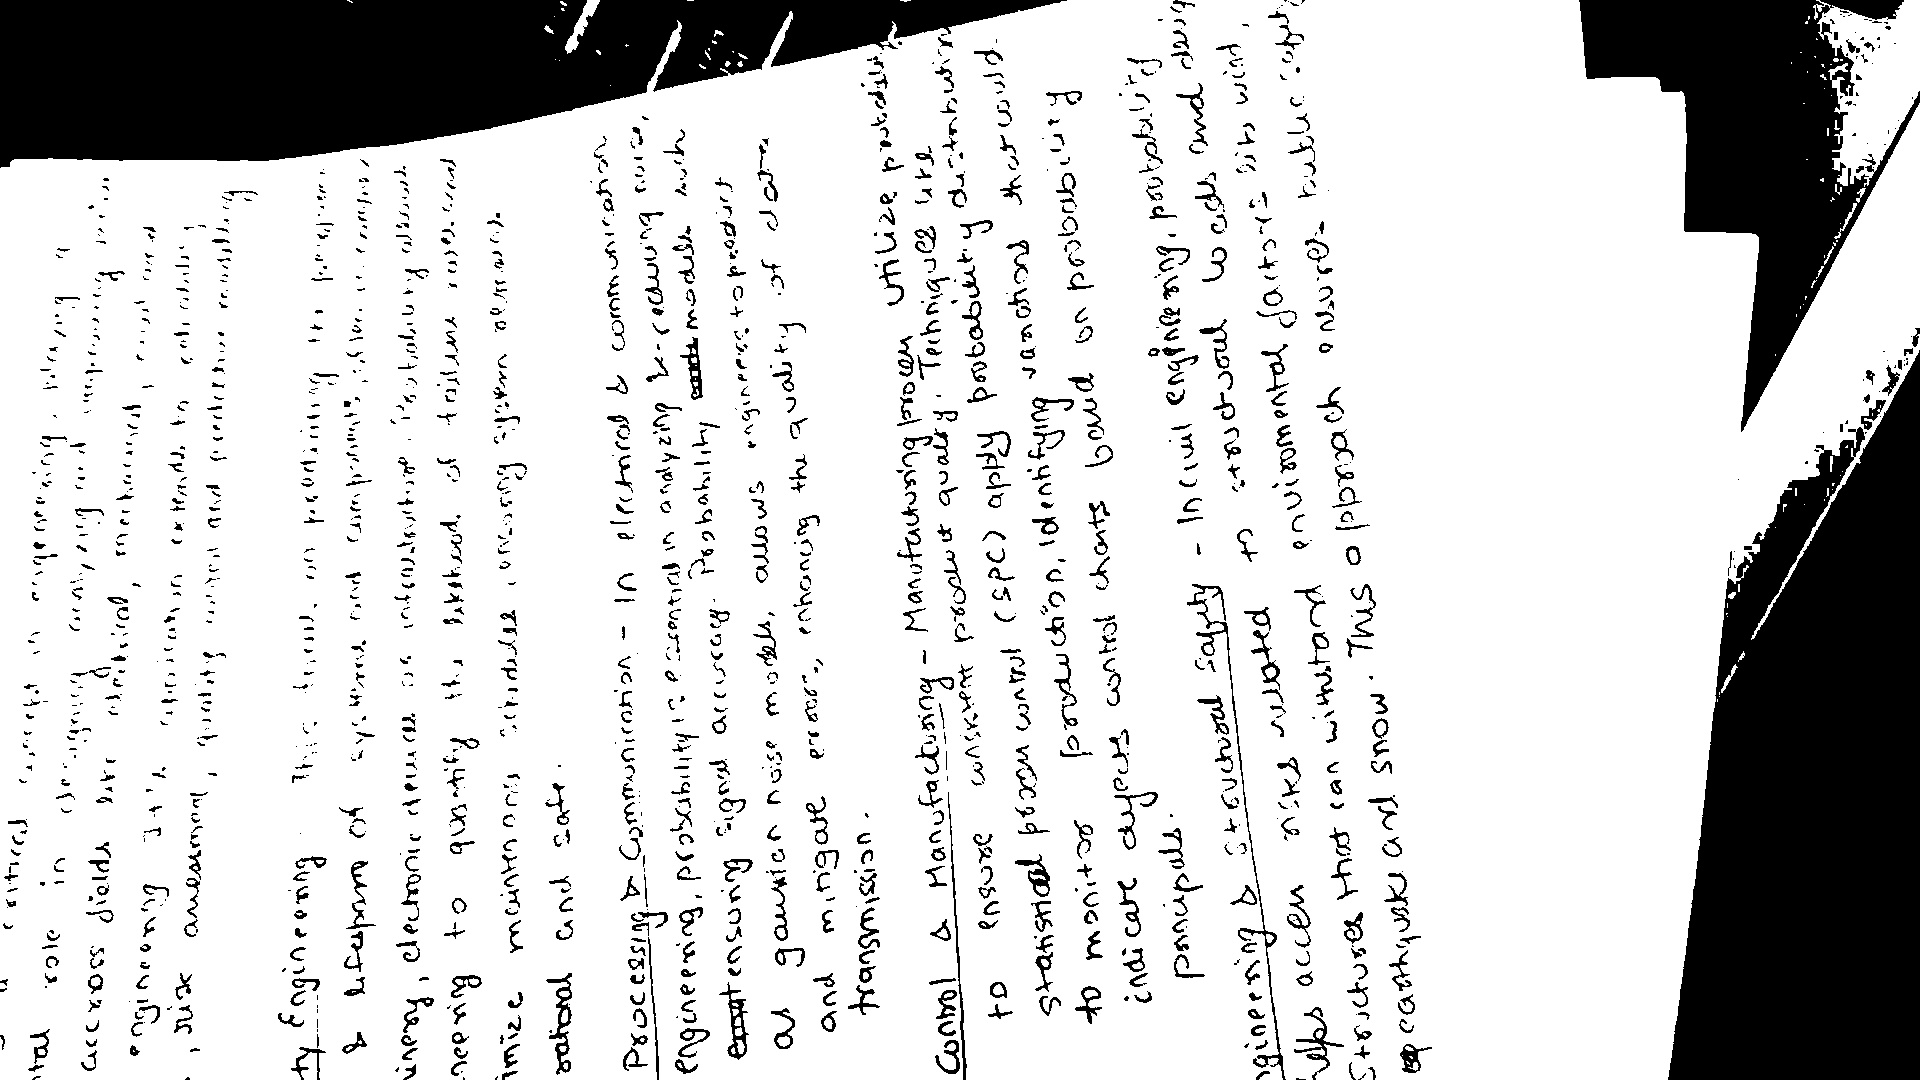 critical concept in engineering, playing a
role in designing, analyzing and improving
across fields like electrical, mechanical, civil and
engineering. It's application extends to reliability
, risk assessment, quality control and predictive modelling
ty Engineering - This based on predicting the
& lifespan of systems and components, often in complex
inery, electronic devices or infrastructure. Probability
neering to quantify the likelihood of failure over
imize maintenance schedules, ensuring system remains
rational and safe.
Processing & Communication - In electrical & communication
engineering, probability is essential in analyzing & reducing noise,
ensuring signal accuracy. Probability models such
as gaussian noise models, allows engineers to predict
and mitigate errors, enhancing the quality of data
transmission.
Control & Manufacturing - Manufacturing process utilize probability
to ensure consistent product quality. Techniques like
statistical process control (SPC) apply probability distribution
to monitor production, identifying variations that could
indicate dyects control charts based on probability
principals.
ngineering & Structural Safety - In civil engineering, probability
helps access risks related to structural loads and design
Structures that can withstand environmental factors like wind,
earthquake and snow. This approach ensures public safety